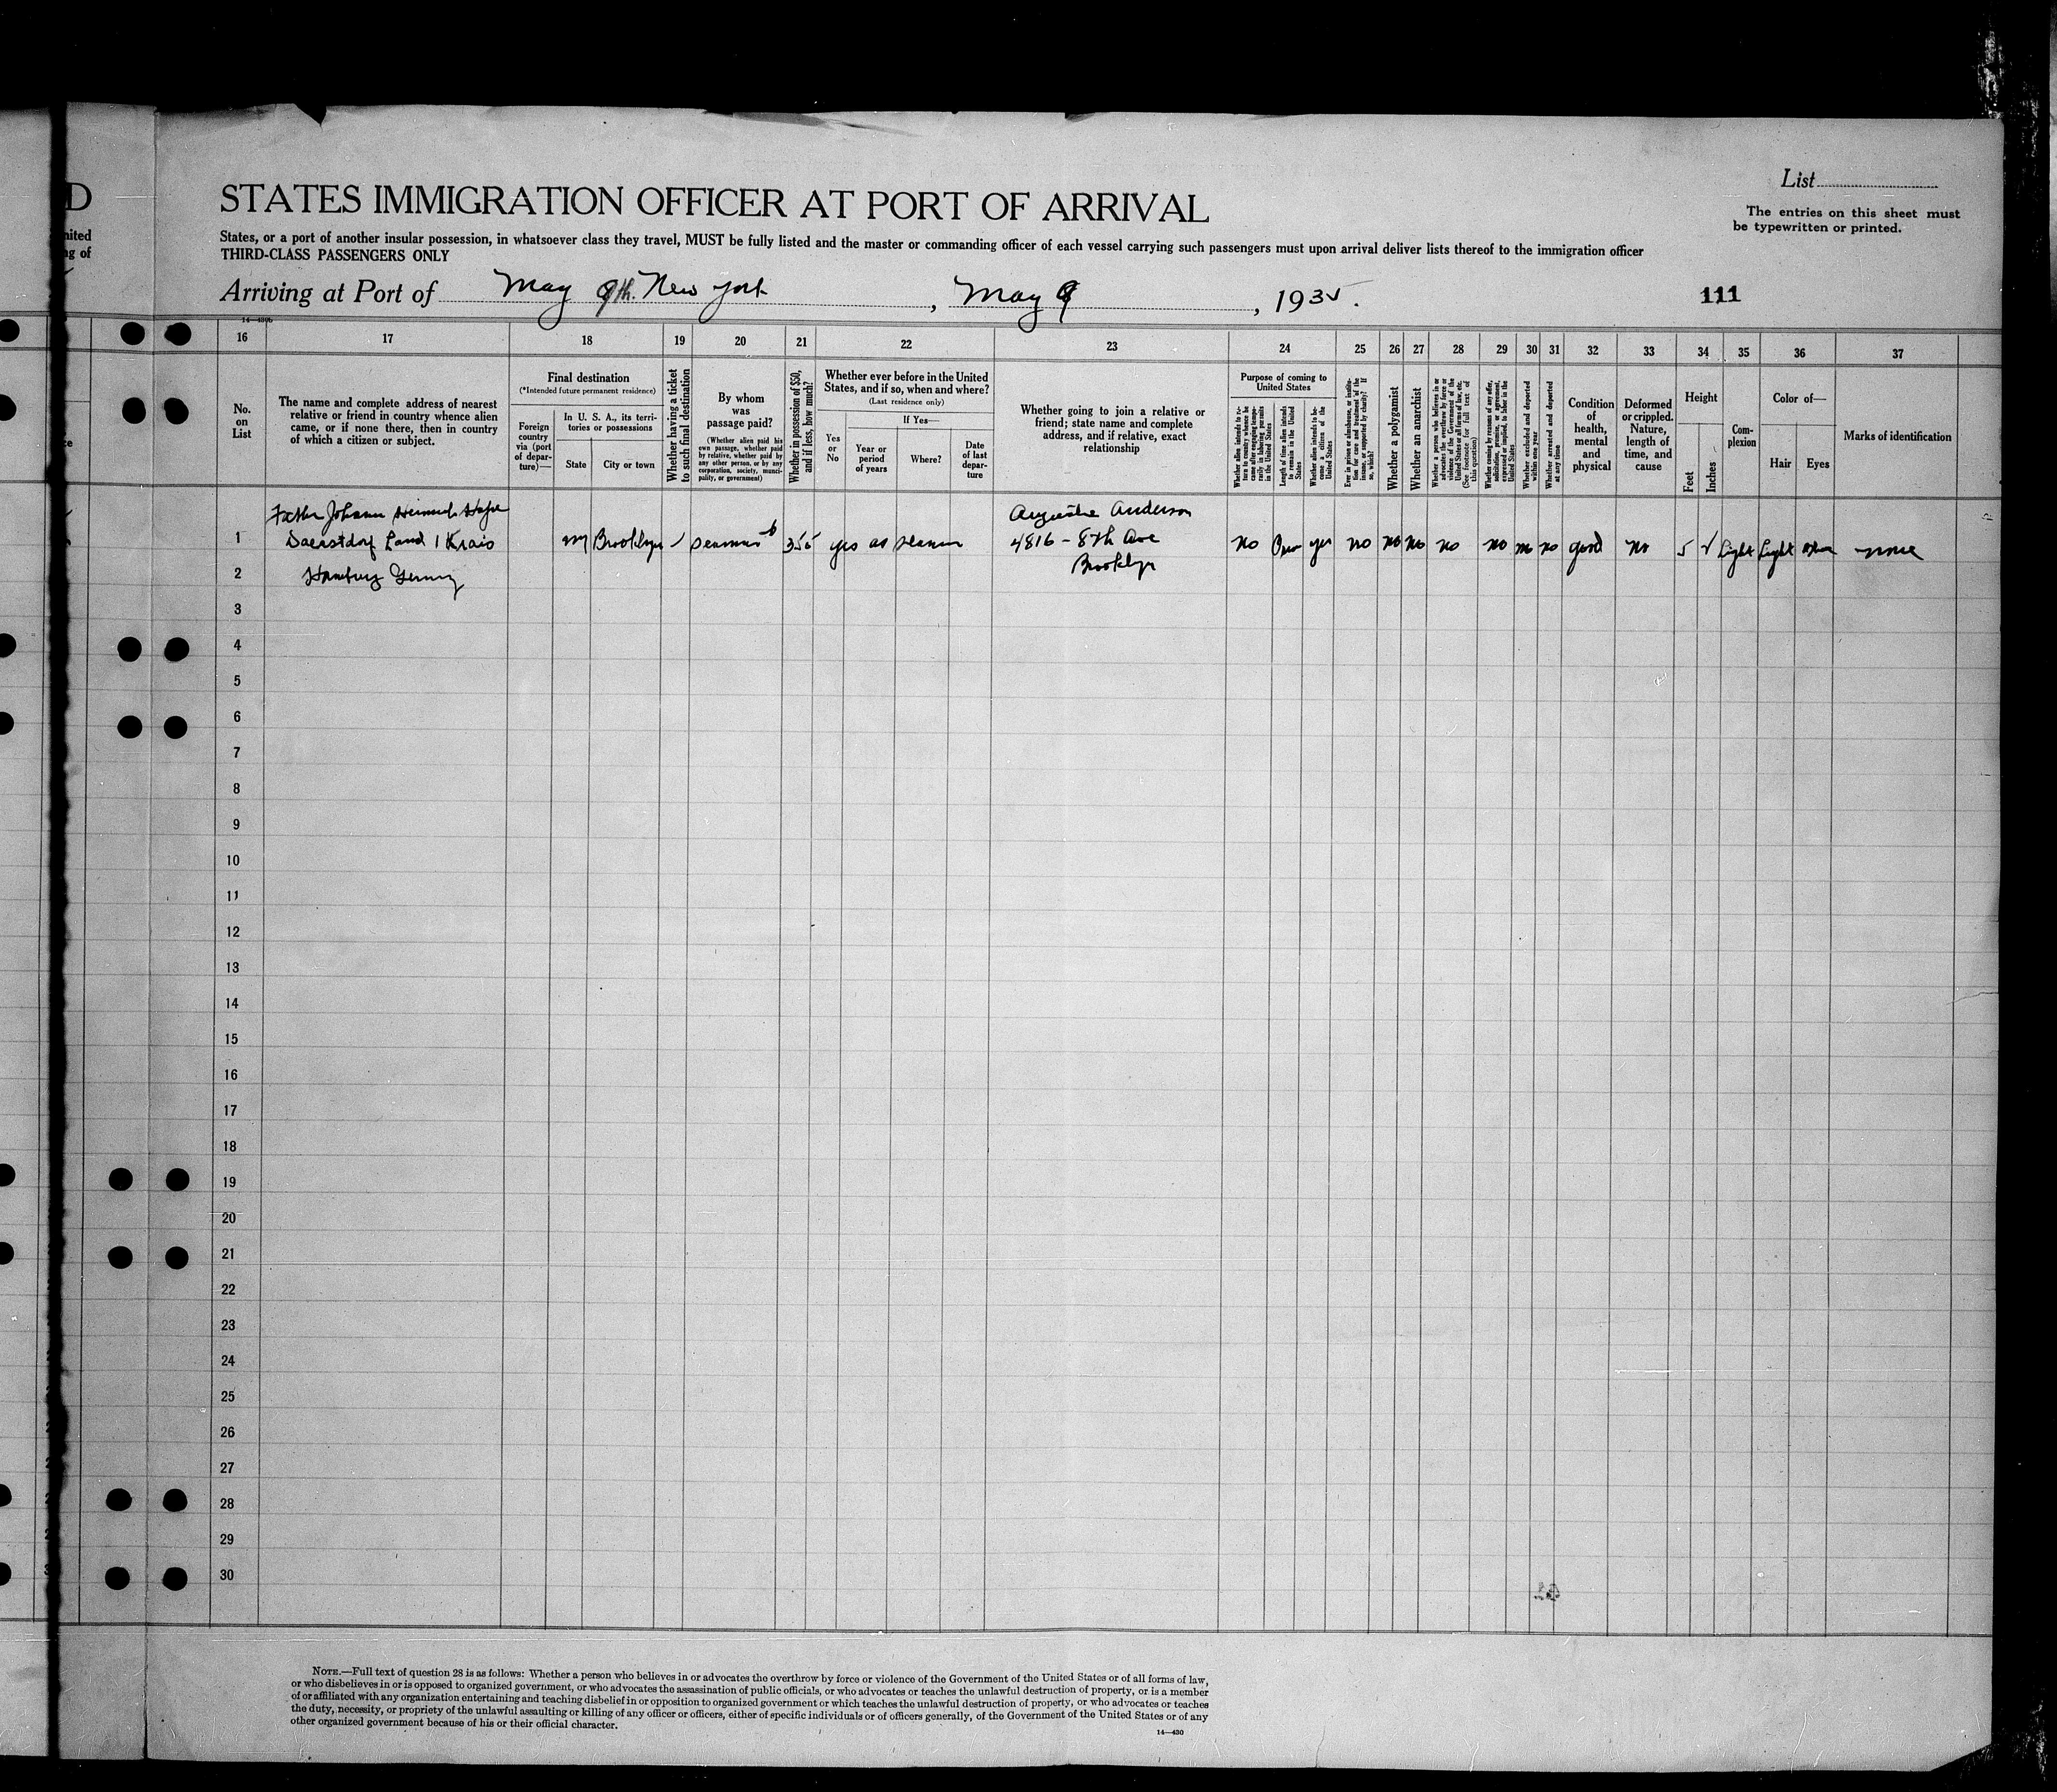 D
nited
ng of
STATES IMMIGRATION OFFICER AT PORT OF ARRIVAL
List
The entries on this sheet must
be typewritten or printed.
States, or a port of another insular possession, in whatsoever class they travel, MUST be fully listed and the master or commanding officer of each vessel carrying such passengers must upon arrival deliver lists thereof to the immigration officer
THIRD-CLASS PASSENGERS ONLY
Arriving at Port of May 9th. New York, May 9, 1935.
111
16 17 18 19 20 21 22 23 24 25 26 27 28 29 30 31 32 33 34 35 36 37
No.
on
List
The name and complete address of nearest
relative or friend in country whence alien
came, or if none there, then in country
of which a citizen or subject.
Final destination
(*Intended future permanent residence)
Foreign
country
via (port
of depar-
ture)—
In U. S. A., its terri-
tories or possessions
State
City or town
Whether having a ticket
to such final destination
By whom
was
passage paid?
(Whether alien paid his
own passage, whether paid
by relative, whether paid by
any other person, or by any
corporation, society, munici-
pality, or government)
Whether in possession of $50,
and if less, how much?
Whether ever before in the United
States, and if so, when and where?
(Last residence only)
Yes
or
No
If Yes—
Year or
period
of years
Where?
Date
of last
depar-
ture
Whether going to join a relative or
friend; state name and complete
address, and if relative, exact
relationship
Purpose of coming to
United States
Whether alien intends to re-
turn to country whence he
came after engaging tempo-
rarily in laboring pursuits
in the United States
Length of time alien intends
to remain in the United
States
Whether alien intends to be-
come a citizen of the
United States
Ever in prison or almshouse, or institu-
tion for care and treatment of the
insane, or supported by charity? If
so, which?
Whether a polygamist
Whether an anarchist
Whether a person who believes in or
advocates the overthrow by force or
violence of the Government of the
United States or all forms of law, etc.
(See footnote for full text of
this question)
Whether coming by reason of any offer,
solicitation, promise, or agreement,
expressed or implied, to labor in the
United States
Whether excluded and deported
within one year
Whether arrested and deported
at any time
Condition
of
health,
mental
and
physical
Deformed
or crippled.
Nature,
length of
time, and
cause
Height
Feet
Inches
Com-
plexion
Color of—
Hair
Eyes
Marks of identification
Father Johann Heinrich
Augusta Anderson
1 Land Krais Brooklyn yes as seaman 4816 - 8th Ave no yes no no no no no no no good no 5 Light Light none
Brooklyn
2 Hamburg
3
4
5
6
7
8
9
10
11
12
13
14
15
16
17
18
19
20
21
22
23
24
25
26
27
28
29
30
NOTE.—Full text of question 28 is as follows: Whether a person who believes in or advocates the overthrow by force or violence of the Government of the United States or of all forms of law,
or who disbelieves in or is opposed to organized government, or who advocates the assassination of public officials, or who advocates or teaches the unlawful destruction of property, or is a member
of or affiliated with any organization entertaining and teaching disbelief in or opposition to organized government or which teaches the unlawful destruction of property, or who advocates or teaches
the duty, necessity, or propriety of the unlawful assaulting or killing of any officer or officers, either of specific individuals or of officers generally, of the Government of the United States or of any
other organized government because of his or their official character.
14—430